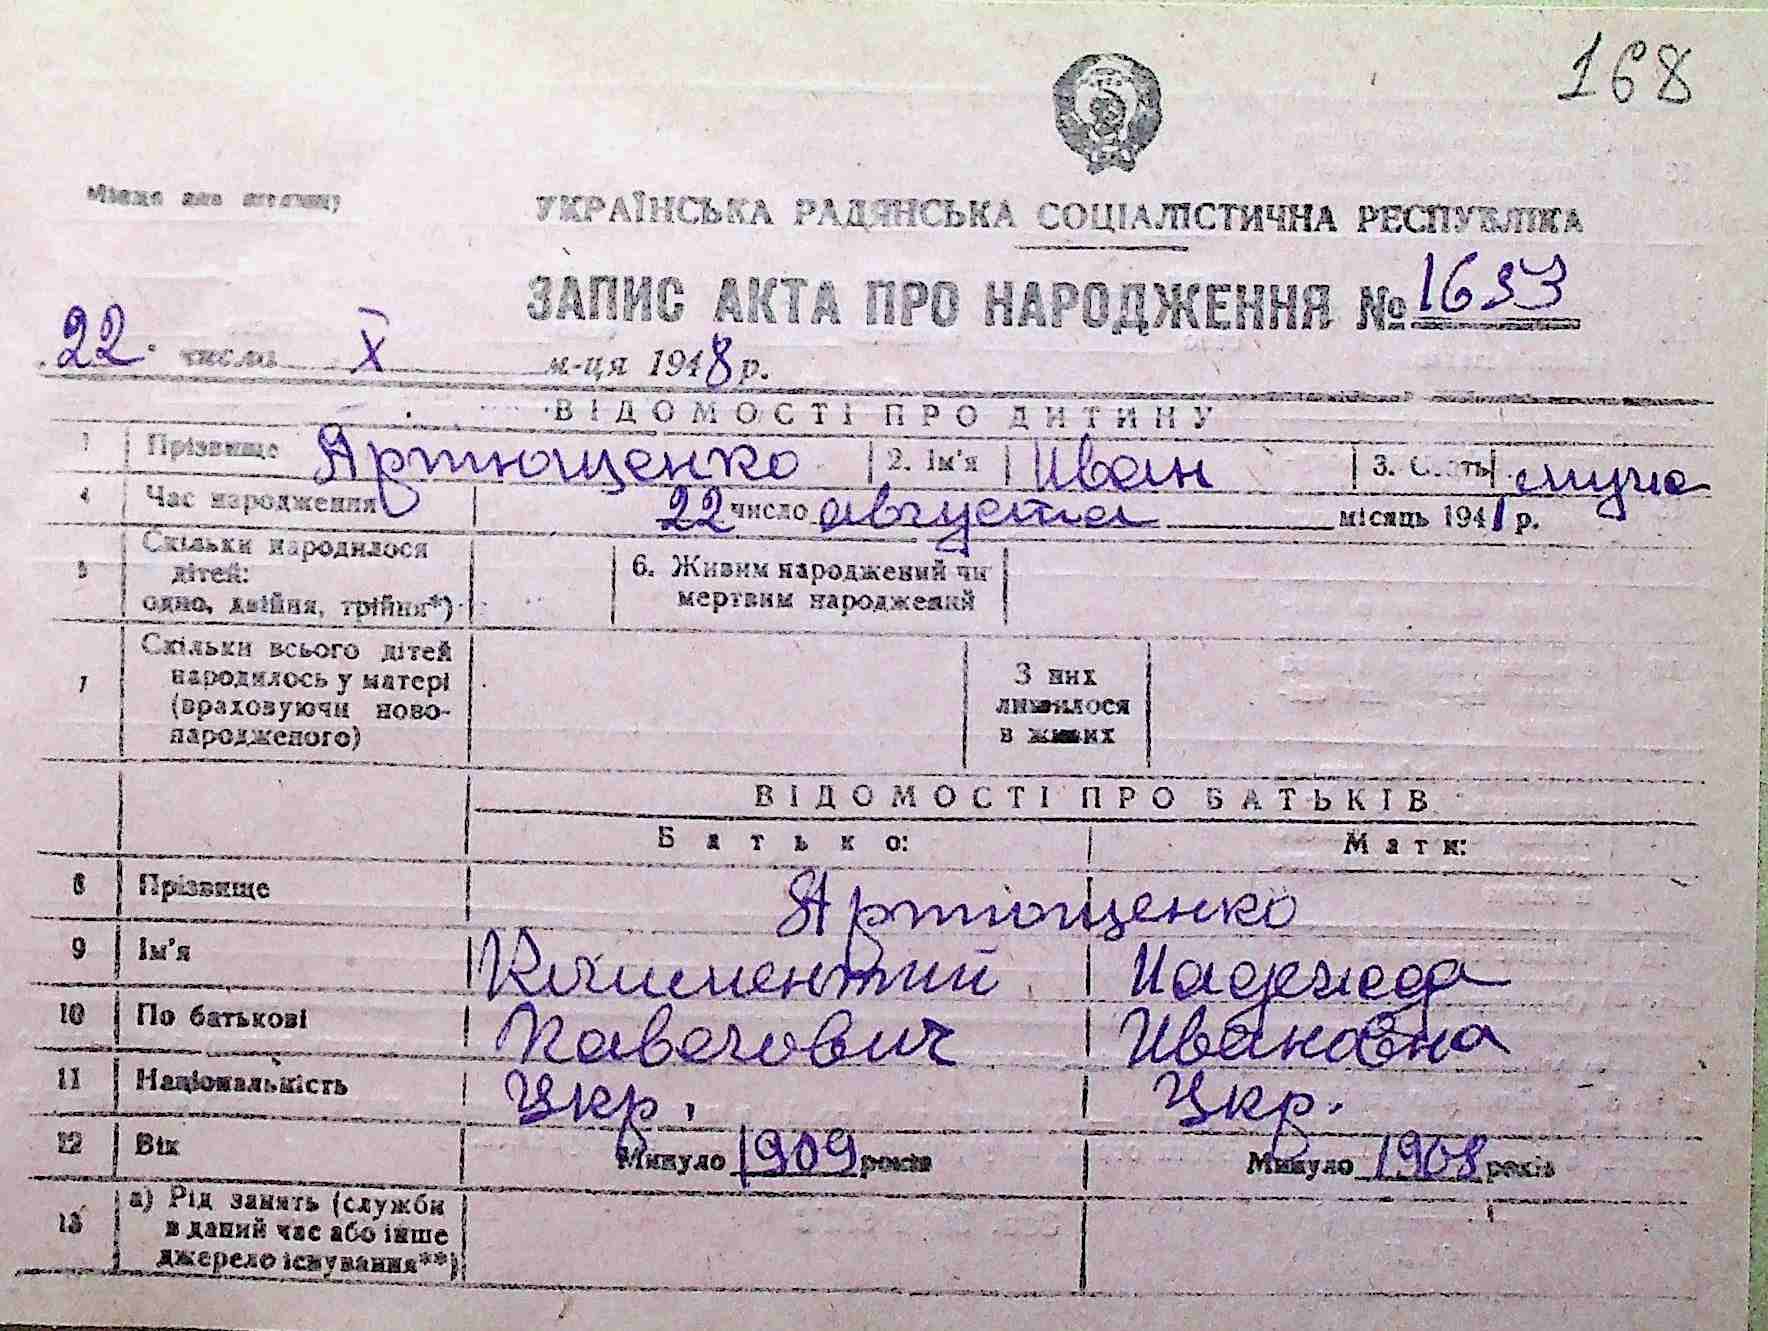 168
Місце для штампу
УКРАЇНСЬКА РАДЯНСЬКА СОЦІАЛІСТИЧНА РЕСПУБЛІКА
ЗАПИС АКТА ПРО НАРОДЖЕННЯ № 1633
22. число X м-ця 1948 р.
ВІДОМОСТІ ПРО ДИТИНУ
1 Прізвище Артющенко 2. Ім'я Иван 3. Стать муж
4 Час народження 22 число августа місяць 1941 р.
5 Скільки народилося дітей: одно, двійня, трійня*) 6. Живим народжений чи мертвим народжений
7 Скільки всього дітей народилось у матері (враховуючи новонародженого) З них лишилося в живих
ВІДОМОСТІ ПРО БАТЬКІВ
Батько: Мати:
8 Прізвище Артющенко
9 Ім'я Климентий Надежда
10 По батькові Павлович Ивановна
11 Національність Укр. Укр.
12 Вік Минуло 1909 років Минуло 1908 років
13 а) Рід занять (служби в даний час або інше джерело існування**)